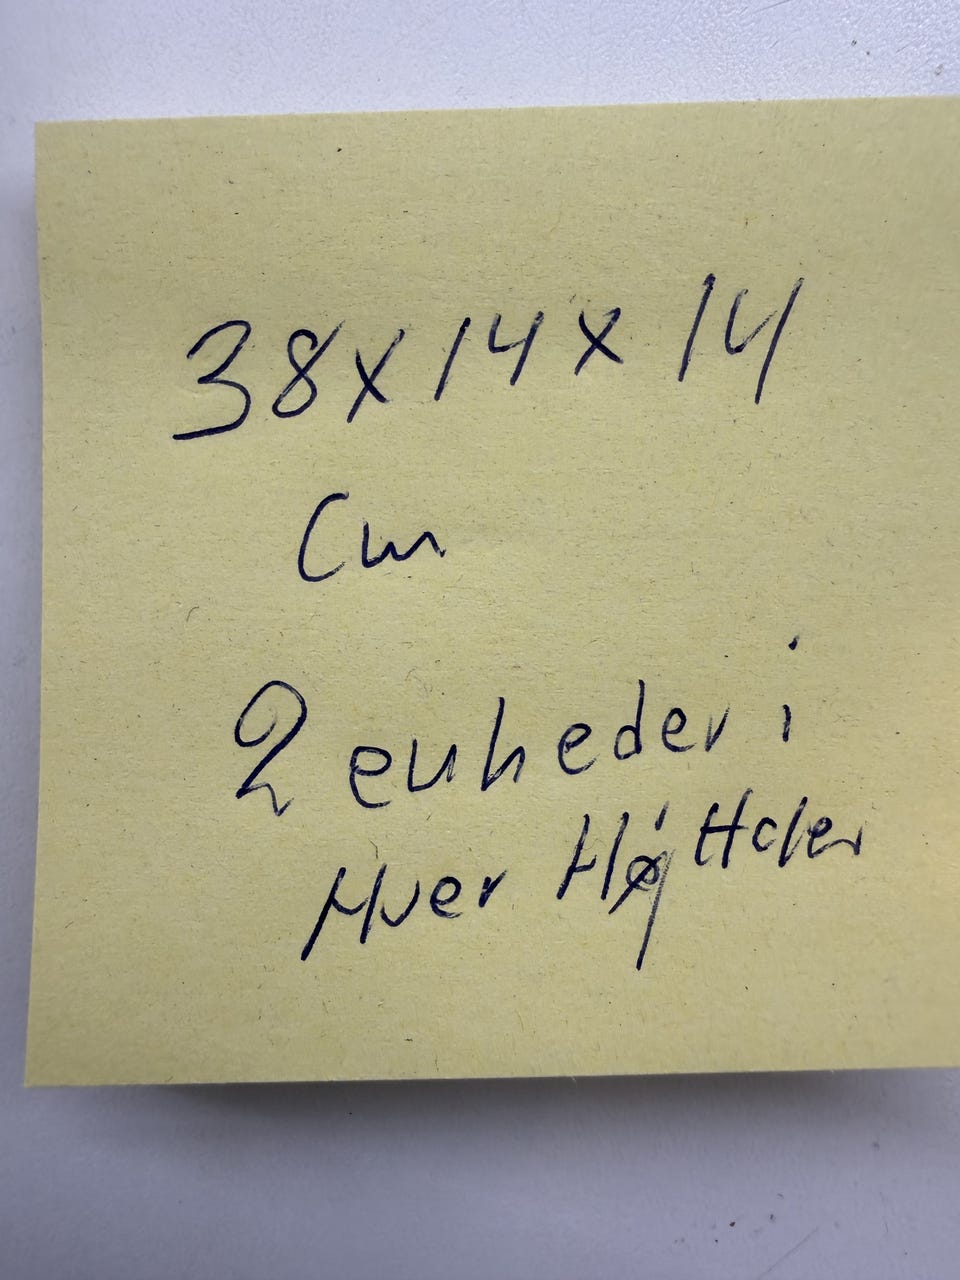 38x14x14
Cm
2 enheder i
Hver Højttaler